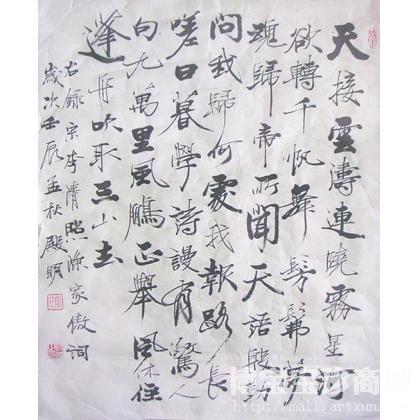 天接雲濤連曉霧星河
欲轉千帆舞髣髴夢
魂歸帝所聞天語殷勤
問我歸何處我報路長
嗟日暮學詩謾有驚人
句九萬里風鵬正舉風休住
蓬舟吹取三山去
右錄宋李清照漁家傲詞
歲次壬辰孟秋 殿明
http://mall.artxun.